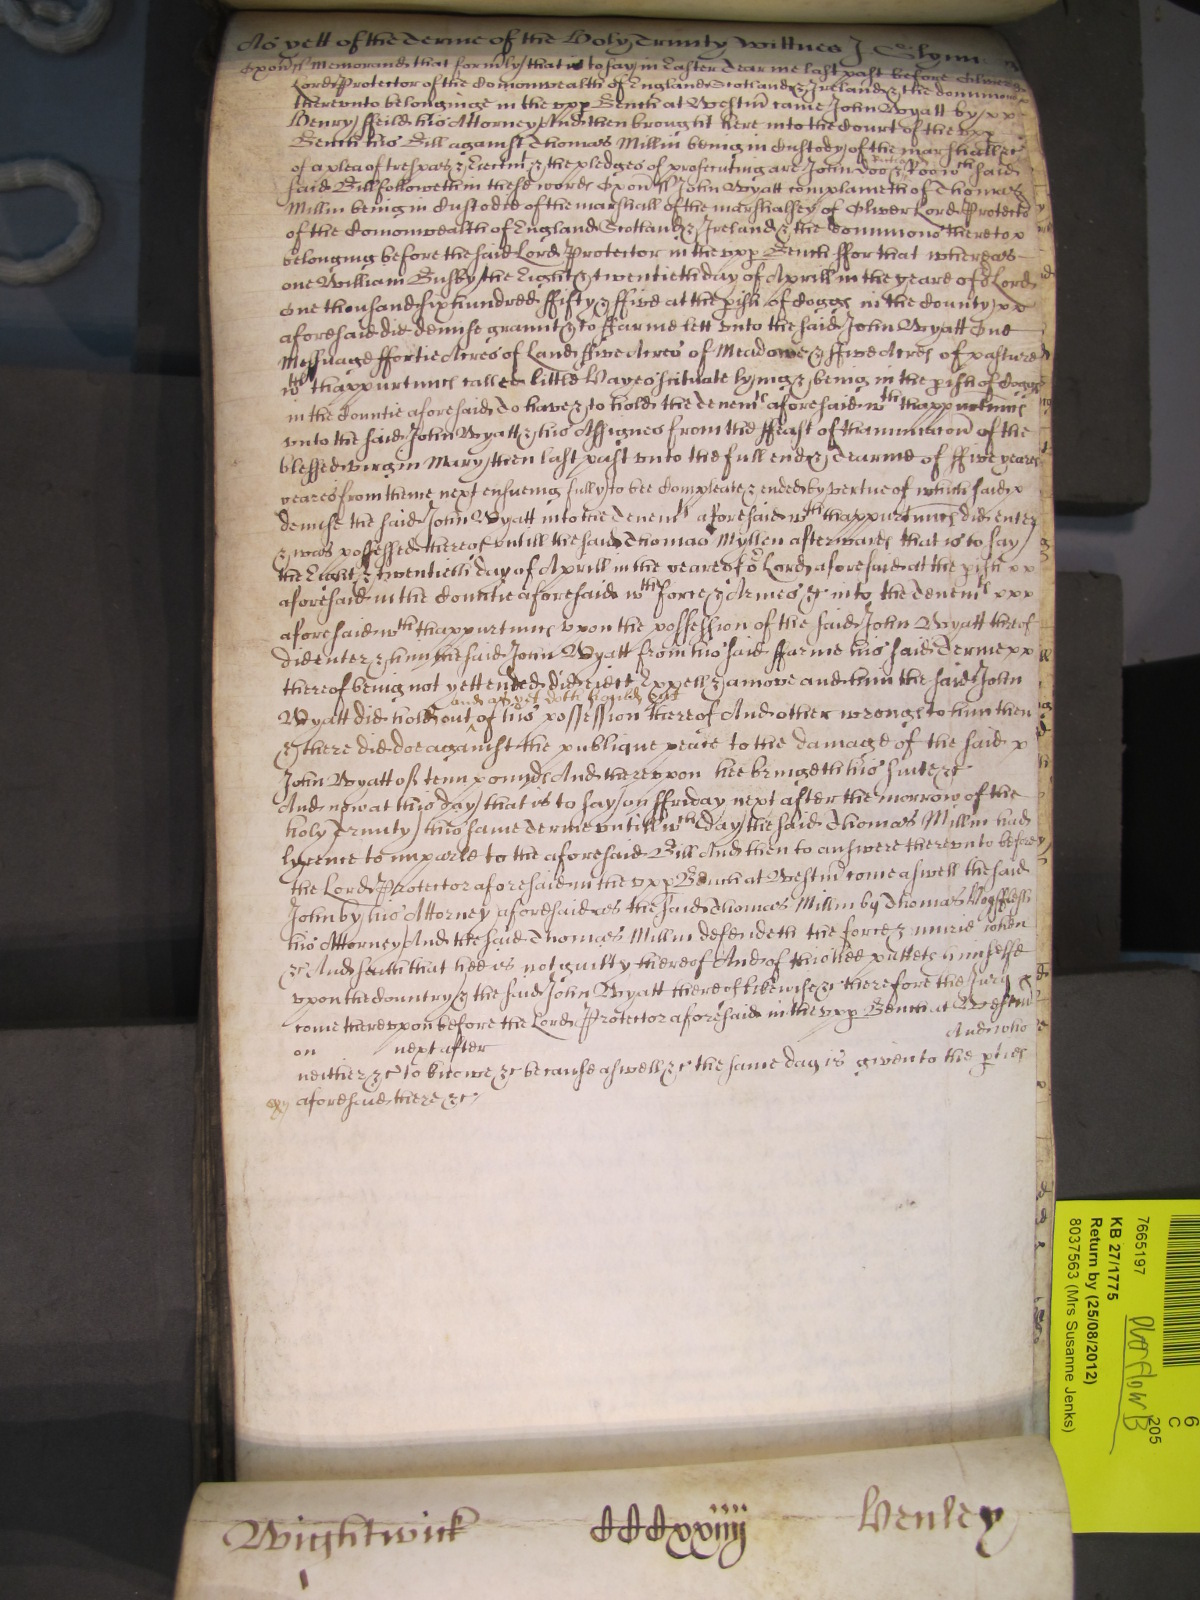 As yett of the Terme of the Holy Trinity Wittnes J. Glynn
Oxon ss Memorand that formerly that is to say in Easter Tearme last past before Oliver
Lord Protector of the Comonwealth of England Scotland & Ireland & the dominions
thereunto belonginge in the upp Bench at Westm came John Wyatt by
Henry ffeild his Attorney And then brought here into the Court of the upp
Bench his Bill against Thomas Millin being in Custody of the marshall &c
of a plea of trespas & Eiectm & the pledges of prosecuting are John Doo & Richard Roo wch said
said Bill followeth in these words Oxon ss John Wyatt complaineth of Thomas
Millin being in Custodie of the marshall of the marshallsey of Oliver Lord Protector
of the Comonwealth of England Scotland & Ireland & the dominions thereto
belonging before the said Lord Protector in the upp Bench ffor that whereas
one William Busby the Eight & twentieth day of Aprill in the yeare of or Lord
One thousand six hundred ffifty & ffive at the pish of Cogges in the County
aforesaid did demise graunt & to ffarme lett unto the said John Wyatt One
Messuage ffortie Acres of Land ffive Acres of Meadowe & ffive Acres of pasture
wth thappurtnncs called little Hayes scituate lying & being in the pish of Cogges
in the Countie aforesaid To have & to hold the tenemts aforesaid wth thappurtnncs
unto the said John Wyatt & his Assignes from the ffeast of thanunciacon of the
blessed virgin Mary then last past unto the full end & Tearme of ffive yeares
yeares from thence next ensueing fully to bee Compleate & ended by vertue of which said
demise the said John Wyatt into the tenemts aforesaid wth thappurtnncs did enter
& was possessed thereof untill the said Thomas Myllen afterwards that is to say
the Eight & twentieth day of Aprill in the yeare of or Lord aforesaid at the pish
aforesaid in the Countie aforesaid wth force & Armes &c into the tenemts
aforesaid wth thappurtnncs upon the possession of the said John Wyatt thereof
did enter & him the said John Wyatt from his said ffarme his said Terme
thereof being not yett ended did eiect Expell & amove and him the said John
and as yet doth hould out
Wyatt did hold out of his possession thereof And other wrongs to him then
& there did doe against the publique peace to the damage of the said
John Wyatt of tenn pounds And thereupon hee bringeth his suite &c
And now at this day that is to say on ffriday next after the morrow of the
holy Trinity this same Terme untill wch day the said Thomas Millin had
lycence to imparle to the aforesaid Bill And then to answere thereunto before
the Lord Protector aforesaid in the upp Bench at Westm come aswell the said
John by his Attorney aforesaid as the said Thomas Millin by Thomas
his Attorney And the said Thomas Millin defendeth the force & iniurie when
&c And saith that hee is not guilty thereof And of this hee putteth himselfe
upon the Country & the said John Wyatt thereof likewise &c therefore the Jury
come thereupon before the Lord Protector aforesaid in the upp Bench at Westm
on next after And who
neither &c to knowe &c because aswell &c the same day is given to the pties
aforesaid there &c
Wightwick CCCxxiiii Henley
7665197
KB 27/1775
Return by (25/08/2012)
8037563 (Mrs Susanne Jenks)
overflow B
205
C
6